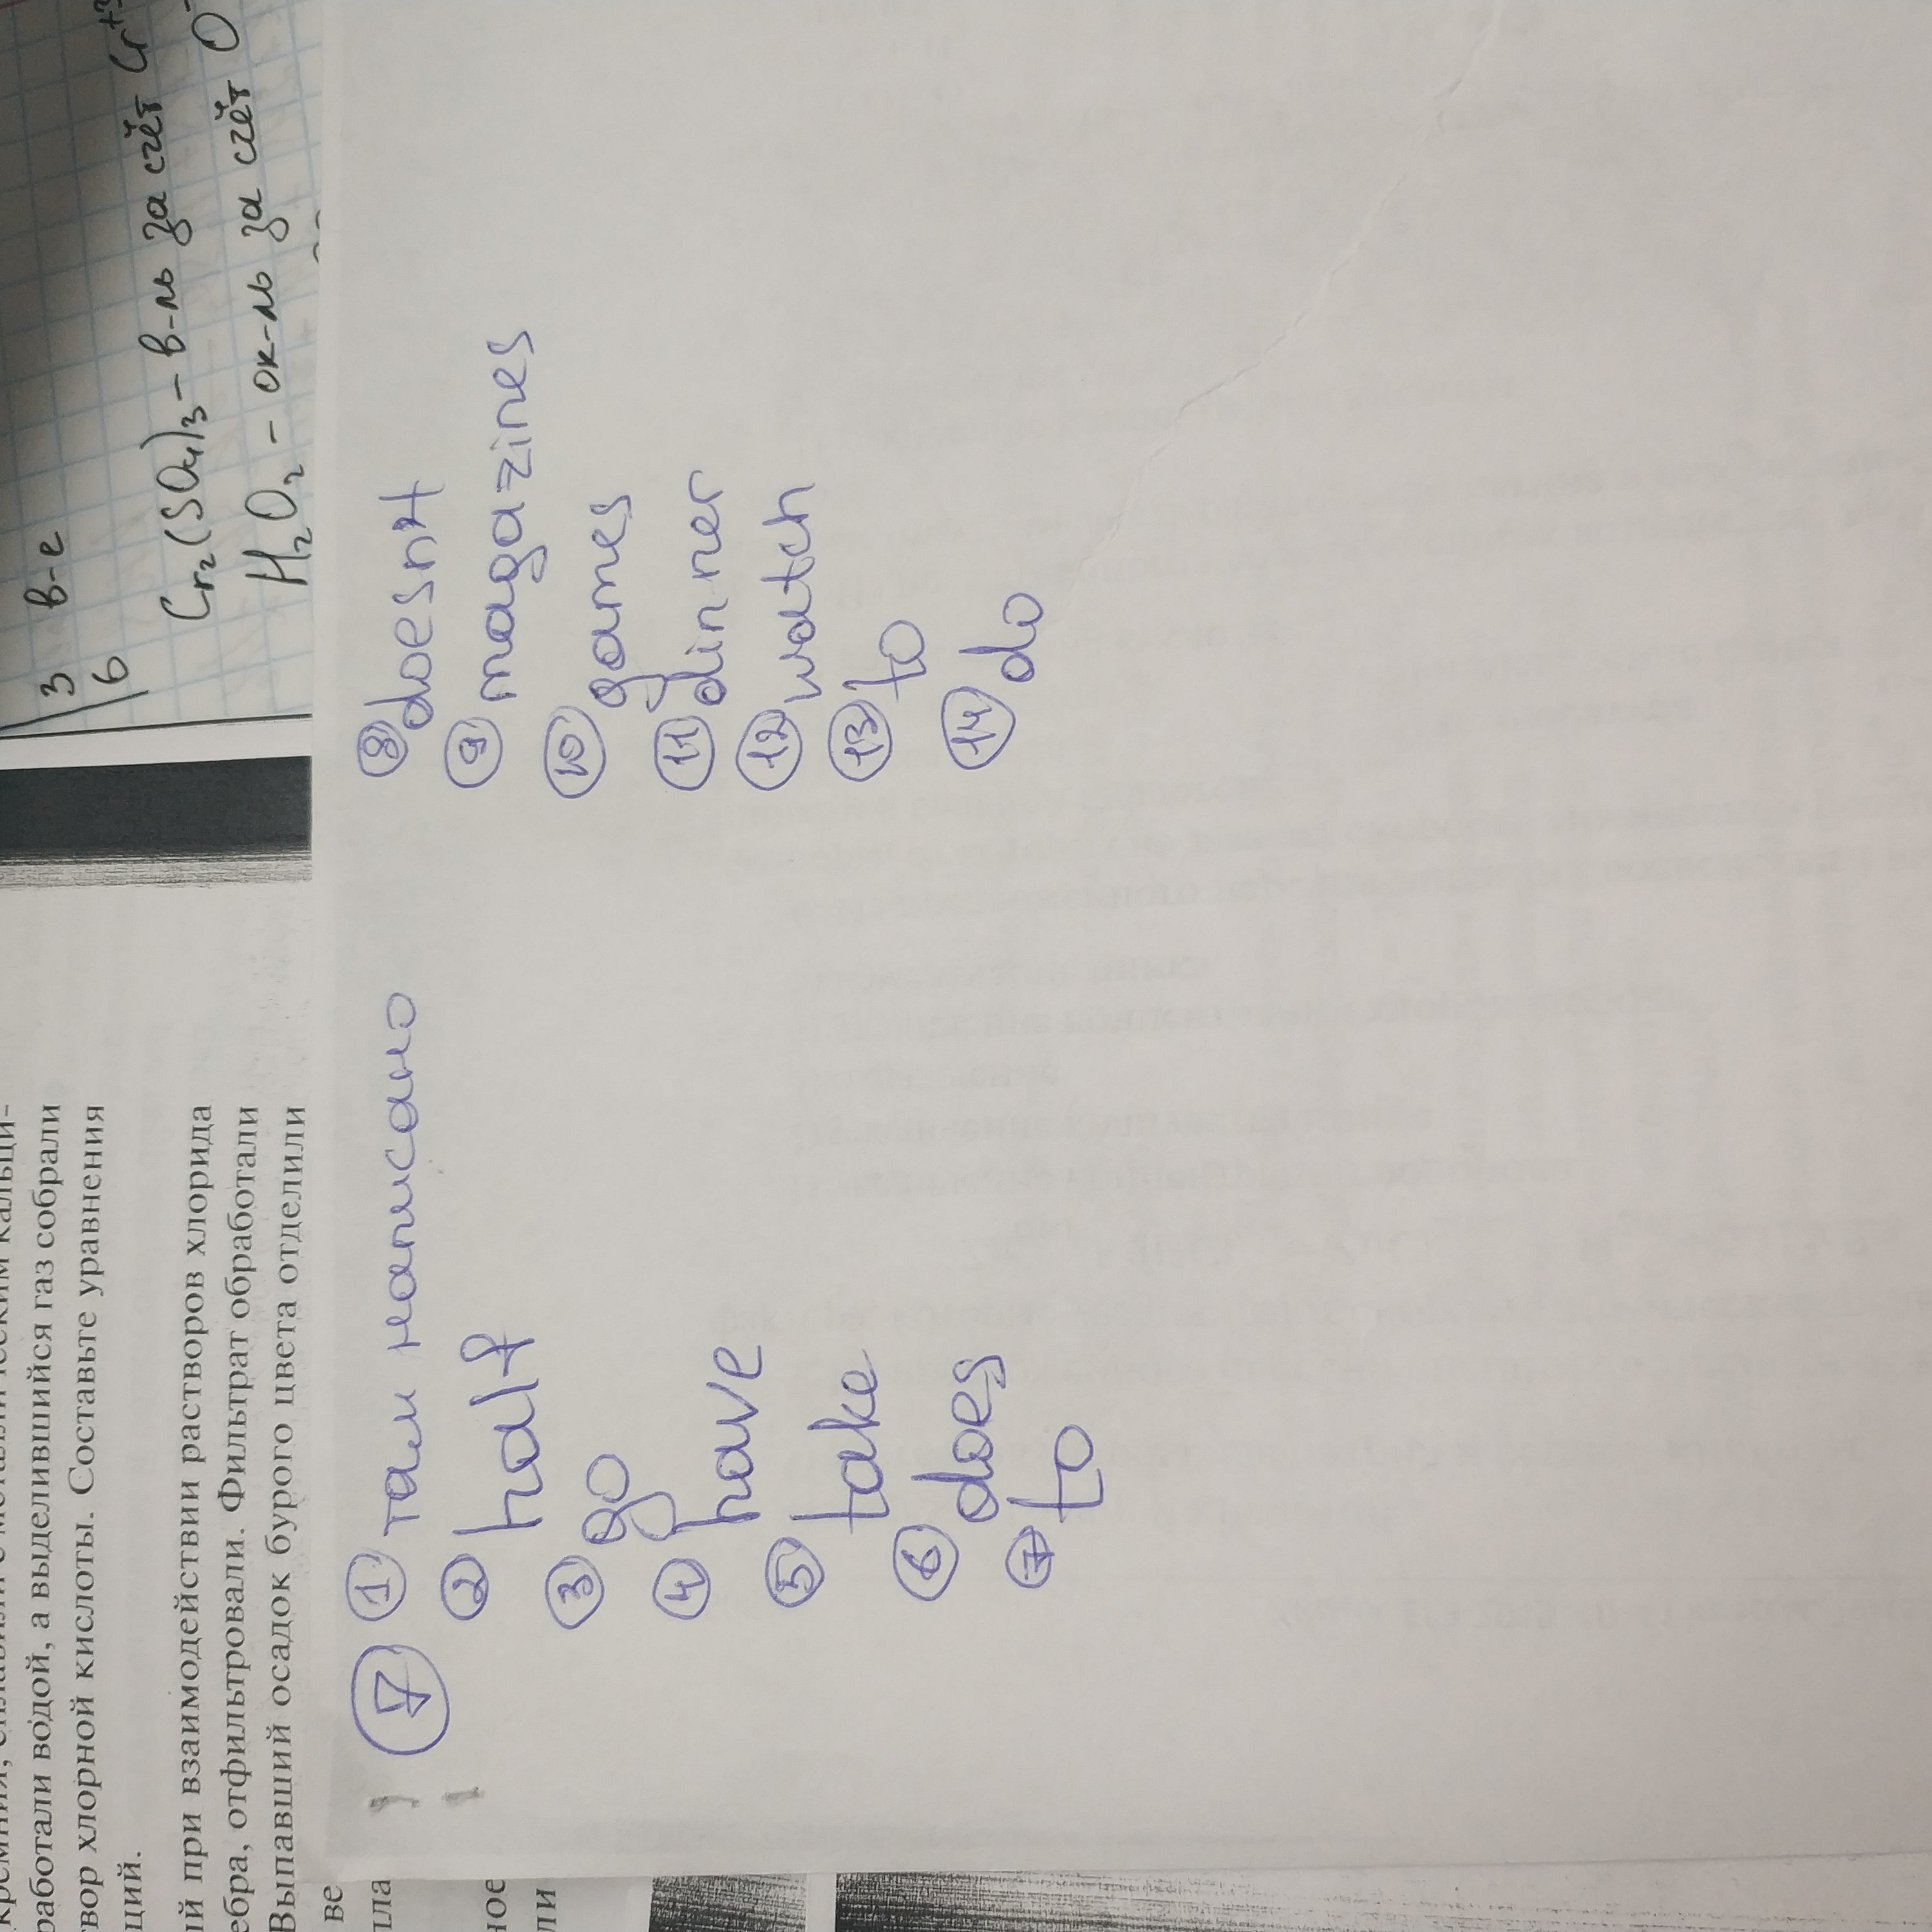 3 в-е
6
Cr₂(SO₄)₃ – в-ль за счёт Cr⁺³
H₂O₂ – ок-ль за счёт O⁻
работали водой, а выделившийся газ собрали
твор хлорной кислоты. Составьте уравнения
ций.
ый при взаимодействии растворов хлорида
ебра, отфильтровали. Фильтрат обработали
Выпавший осадок бурого цвета отделили
ве
пла
ное
ли
7
1 там написано
2 half
3 go
4 have
5 take
6 does
7 to
8 doesnt
9 magazines
10 games
11 dinner
12 watch
13 to
14 do